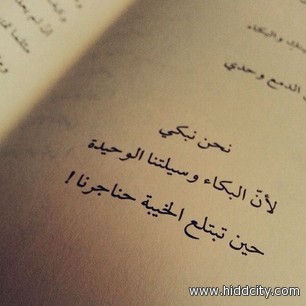 الدمع وحدي
نحن نبكي
لأنّ البكاء وسيلتنا الوحيدة
حين تبتلع الخيبة حناجرنا !
www.hiddcity.com